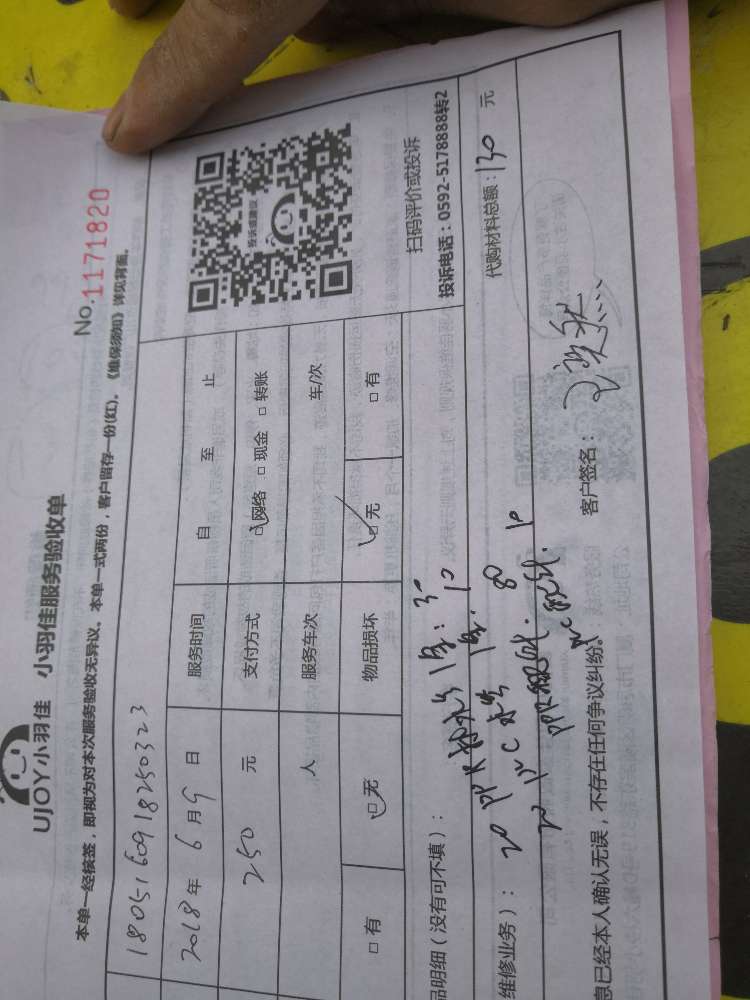 UJOY小羽佳 小羽佳服务验收单
No.1171820
本单一经核签，即视为对本次服务验收无异议。本单一式两份，客户留存一份(红)。《维保须知》详见背面。
180516091825032​3
服务时间 自 至 止
2018年6月9日
支付方式 网络 现金 转账
250 元
服务车次 车/次
人
物品损坏 无 有
有 无
投诉或建议
扫码评价或投诉
投诉电话：0592-5178888转2
品明细（没有可不填）：
代购材料总额：130 元
维修业务）：
20 PPR 30
20 PVC 10
PPR 80
PVC 10
息已经本人确认无误，不存在任何争议纠纷。 客户签名：